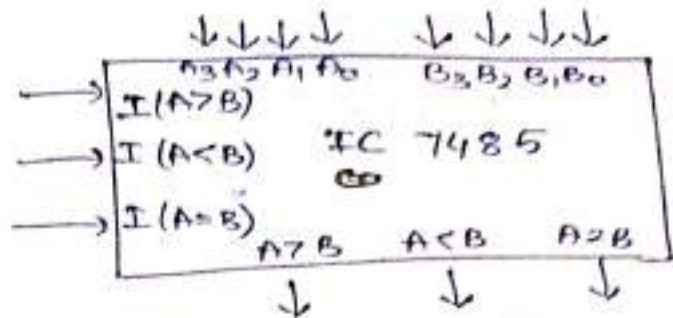 A3 A2 A1 A0 B3 B2 B1 B0
I (A>B)
I (A<B) IC 7485
I (A=B)
A>B A<B A=B